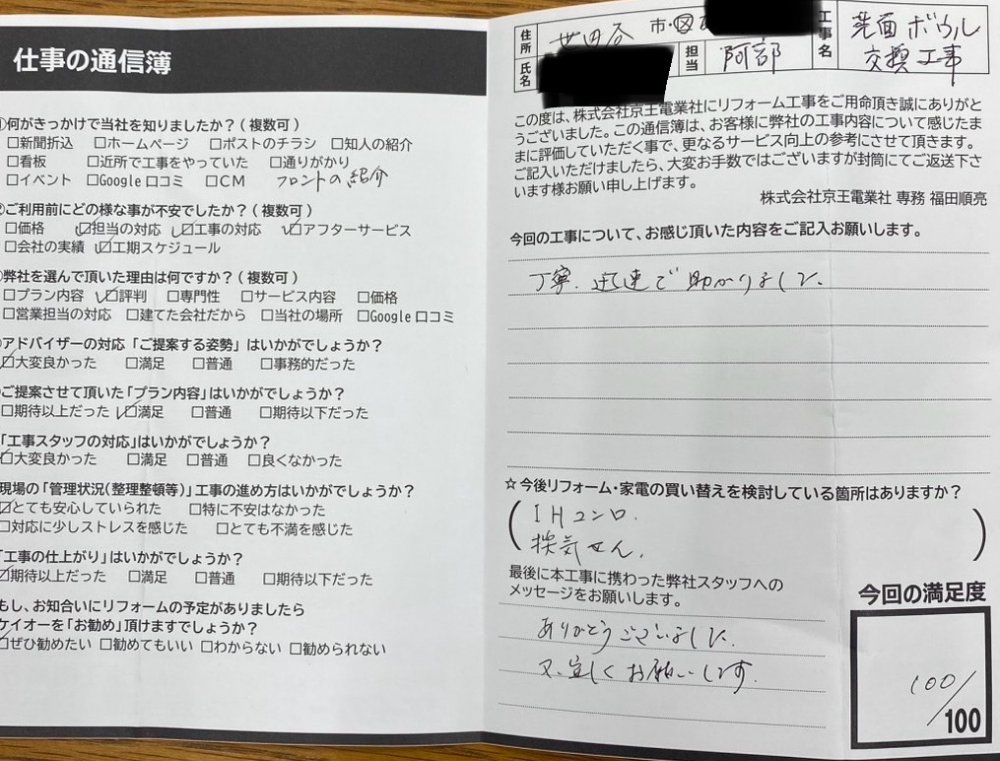 仕事の通信簿
①何がきっかけで当社を知りましたか？(複数可)
□新聞折込 □ホームページ □ポストのチラシ □知人の紹介
□看板 □近所で工事をやっていた □通りがかり
□イベント □Google口コミ □CM フロントの紹介
②ご利用前にどの様な事が不安でしたか？(複数可)
□価格 ☑担当の対応 ☑工事の対応 ☑アフターサービス
□会社の実績 ☑工期スケジュール
弊社を選んで頂いた理由は何ですか？(複数可)
□プラン内容 ☑評判 □専門性 □サービス内容 □価格
□営業担当の対応 □建てた会社だから □当社の場所 □Google口コミ
アドバイザーの対応「ご提案する姿勢」はいかがでしょうか？
☑大変良かった □満足 □普通 □事務的だった
ご提案させて頂いた「プラン内容」はいかがでしょうか？
□期待以上だった ☑満足 □普通 □期待以下だった
「工事スタッフの対応」はいかがでしょうか？
☑大変良かった □満足 □普通 □良くなかった
現場の「管理状況(整理整頓等)」工事の進め方はいかがでしょうか？
☑とても安心していられた □特に不安はなかった
□対応に少しストレスを感じた □とても不満を感じた
「工事の仕上がり」はいかがでしょうか？
☑期待以上だった □満足 □普通 □期待以下だった
もし、お知合いにリフォームの予定がありましたら
ケイオーを「お勧め」頂けますでしょうか？
☑ぜひ勧めたい □勧めてもいい □わからない □勧められない
住所 世田谷 市・区
氏名 担当 阿部
工事名 洗面ボウル
交換工事
この度は、株式会社京王電業社にリフォーム工事をご用命頂き誠にありがと
うございました。この通信簿は、お客様に弊社の工事内容について感じたま
まに評価していただく事で、更なるサービス向上の参考にさせて頂きます。
ご記入いただけましたら、大変お手数ではございますが封筒にてご返送下さ
います様お願い申し上げます。
株式会社京王電業社 専務 福田順亮
今回の工事について、お感じ頂いた内容をご記入お願いします。
丁寧、迅速で助かりました。
☆今後リフォーム・家電の買い替えを検討している箇所はありますか？
(IHコンロ.
換気せん.)
最後に本工事に携わった弊社スタッフへの
メッセージをお願いします。
ありがとうございました.
又、宜しくお願いします.
今回の満足度
100/100